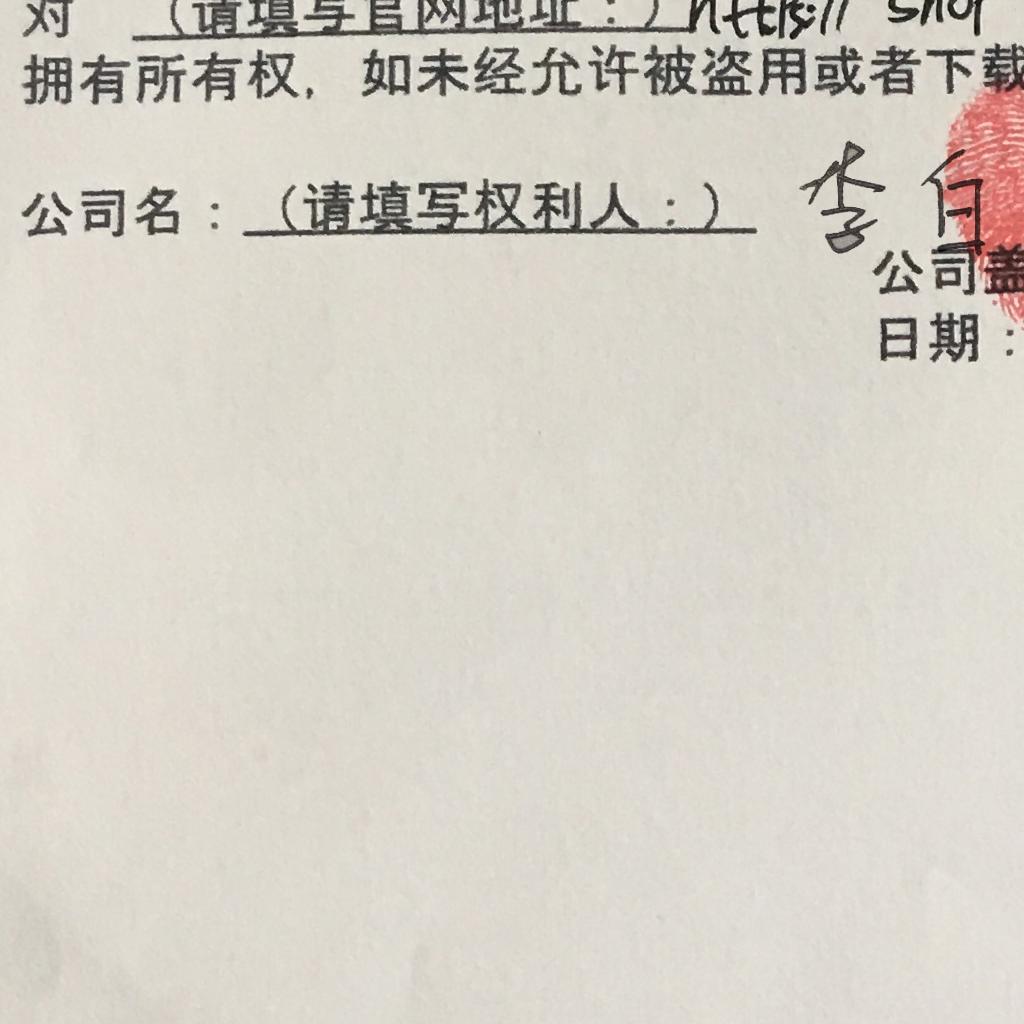 对 （请填写官网地址：） https:// shop
拥有所有权，如未经允许被盗用或者下载
公司名：（请填写权利人：） 李白
公司盖
日期：